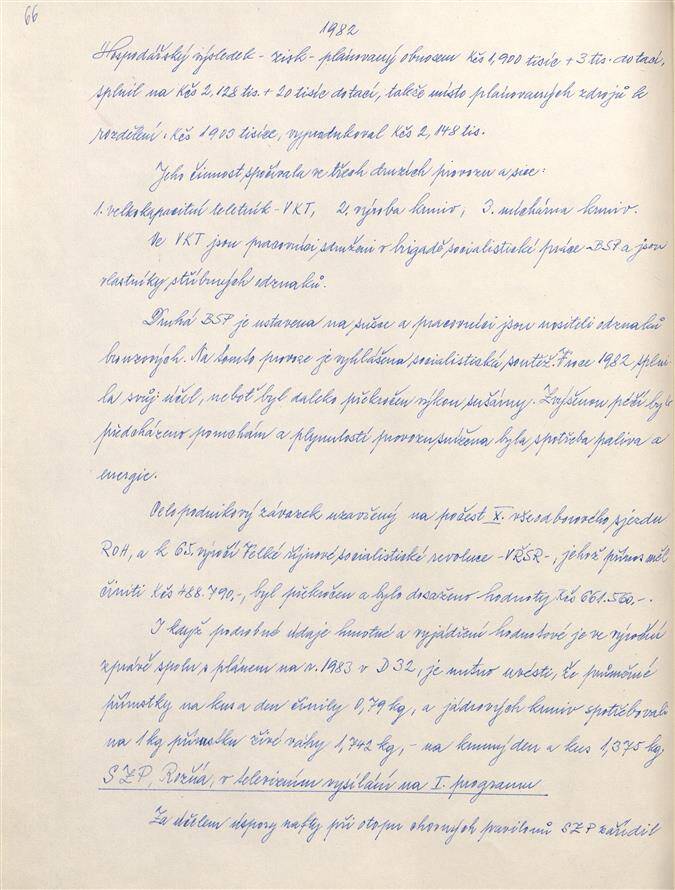 66
1982
Hospodářský výsledek - zisk - plánovaný obnosem Kčs 1,900 tisíc + 3 tis. dotací,
splnil na Kčs 2,128 tis. + 20 tisíc dotací, takže místo plánovaných zdrojů k
rozdělení. Kčs 1,903 tisíce, vyprodukoval Kčs 2,148 tis.
Jeho činnost spočívala ve třech druzích provozu a sice:
1. velkokapacitní teletník - VKT, 2. výroba krmiv, 3. míchárna krmiv.
Ve VKT jsou pracovníci sdruženi v brigádě socialistické práce - BSP a jsou
vlastníky stříbrných odznaků.
Druhá BSP je ustavena na sušce a pracovníci jsou nositeli odznaků
bronzových. Na tomto provoze je vyhlášena socialistická soutěž. V roce 1982 splni-
la svůj účel, neboť byl daleko překročen výkon sušárny. Zvýšenou péčí bylo
předcházeno poruchám a plynulostí provozu snížena byla spotřeba paliva a
energie.
Celopodnikový závazek uzavřený na počest X. všeodborového sjezdu
ROH, a k 65. výročí Velké říjnové socialistické revoluce - VŘSR -, jehož přínos měl
činiti Kčs 488.790,-, byl překročen a bylo dosaženo hodnoty Kčs 661.560,-.
I když podrobné údaje hmotné a vyjádření hodnotové je ve výroční
zprávě spolu s plánem na r. 1983 v D 32, je nutno uvésti, že průměrné
přírustky na kus a den činily 0,79 kg, a jádrových krmiv spotřebovali
na 1 kg přírustku živé váhy 1,742 kg, - na krmný den a kus 1,375 kg.
SZP, Rožná, v televizním vysílání na I. programu
Za účelem úspory nafty při otopu chovných pavilonů SZP zařídil